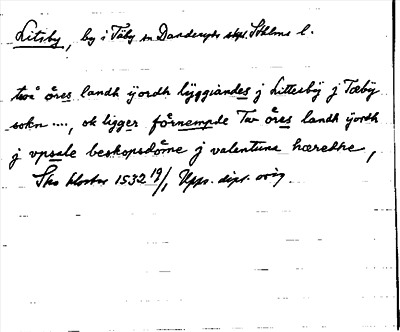 Litsby, by i Täby sn Danderyds skpl. Sthlms l.
twå öres landh ÿordh lÿggiandes j Littesbÿ j Tæbÿ
sokn ...., ok ligger förnempde Tw öres landh ÿordh
j vpsale beskopsdöme j valentuna hærethe,
Sko kloster 1532 19/1, Upps. dipl. orig.